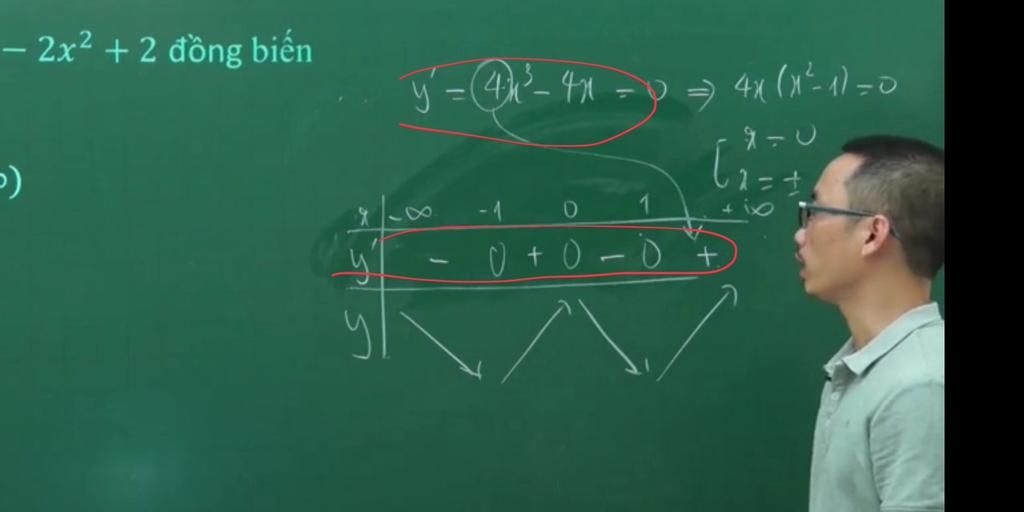 − 2x² + 2 đồng biến
y' = 4x³ − 4x = 0 ⇒ 4x(x² − 1) = 0
x = 0
x = ±
x −∞ -1 0 1 +∞
y' − 0 + 0 − 0 +
y